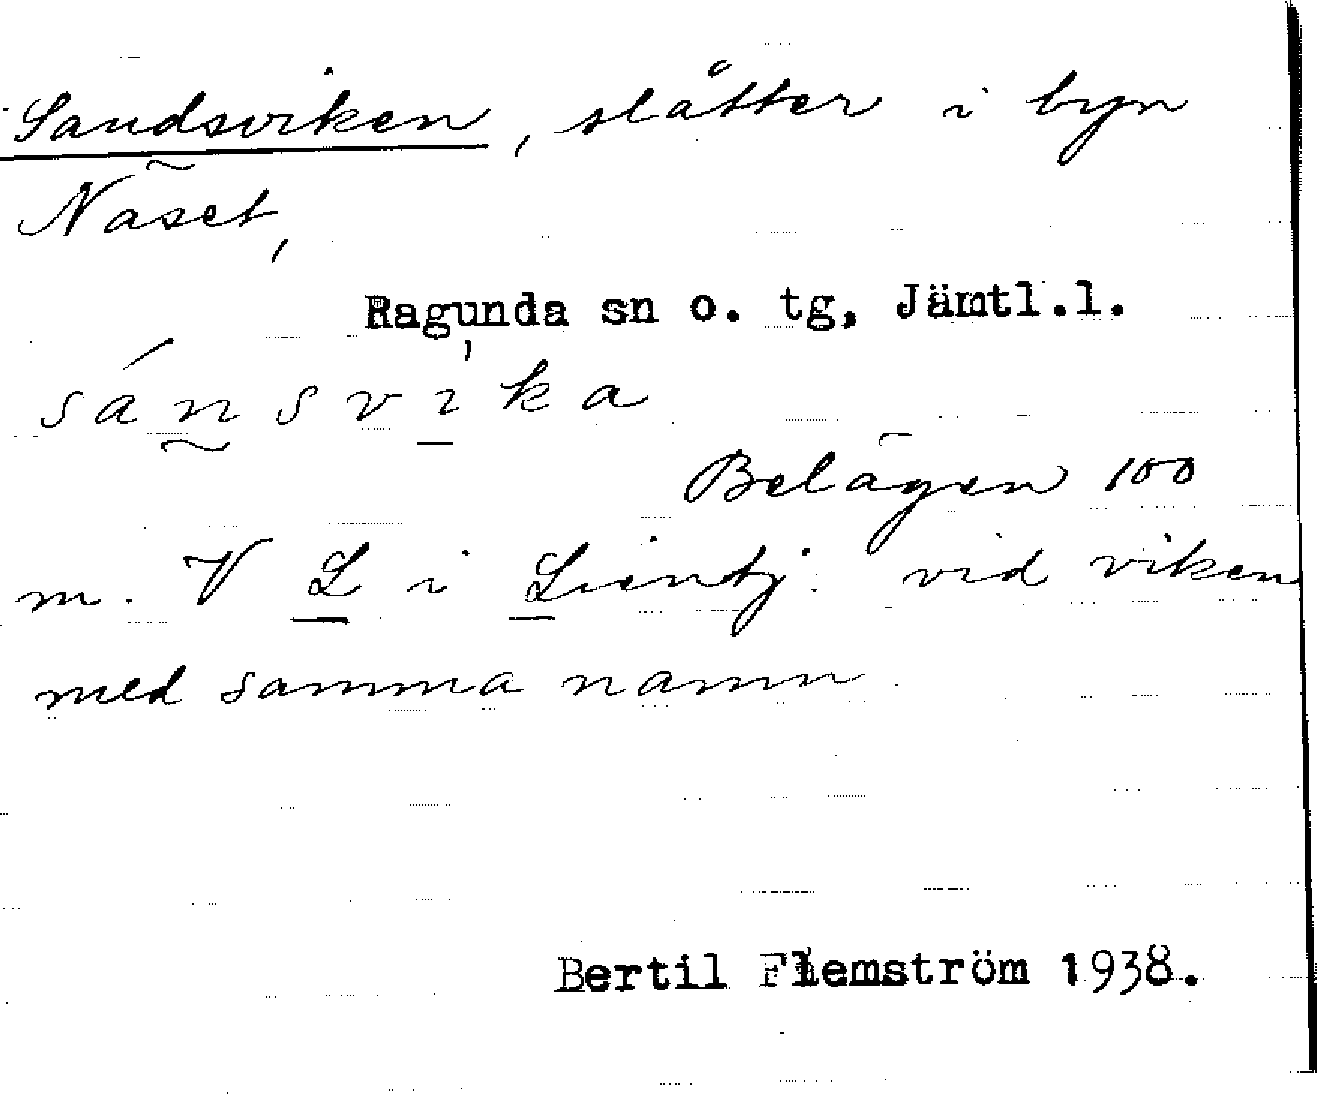 Sandsviken, slåtter i byn
Näset,
Ragunda sn o. tg, Jämtl.l.
sánsvika
Belägen 100
m. V L i Lientj. vid viken
med samma namn.
Bertil Flemström 1938.